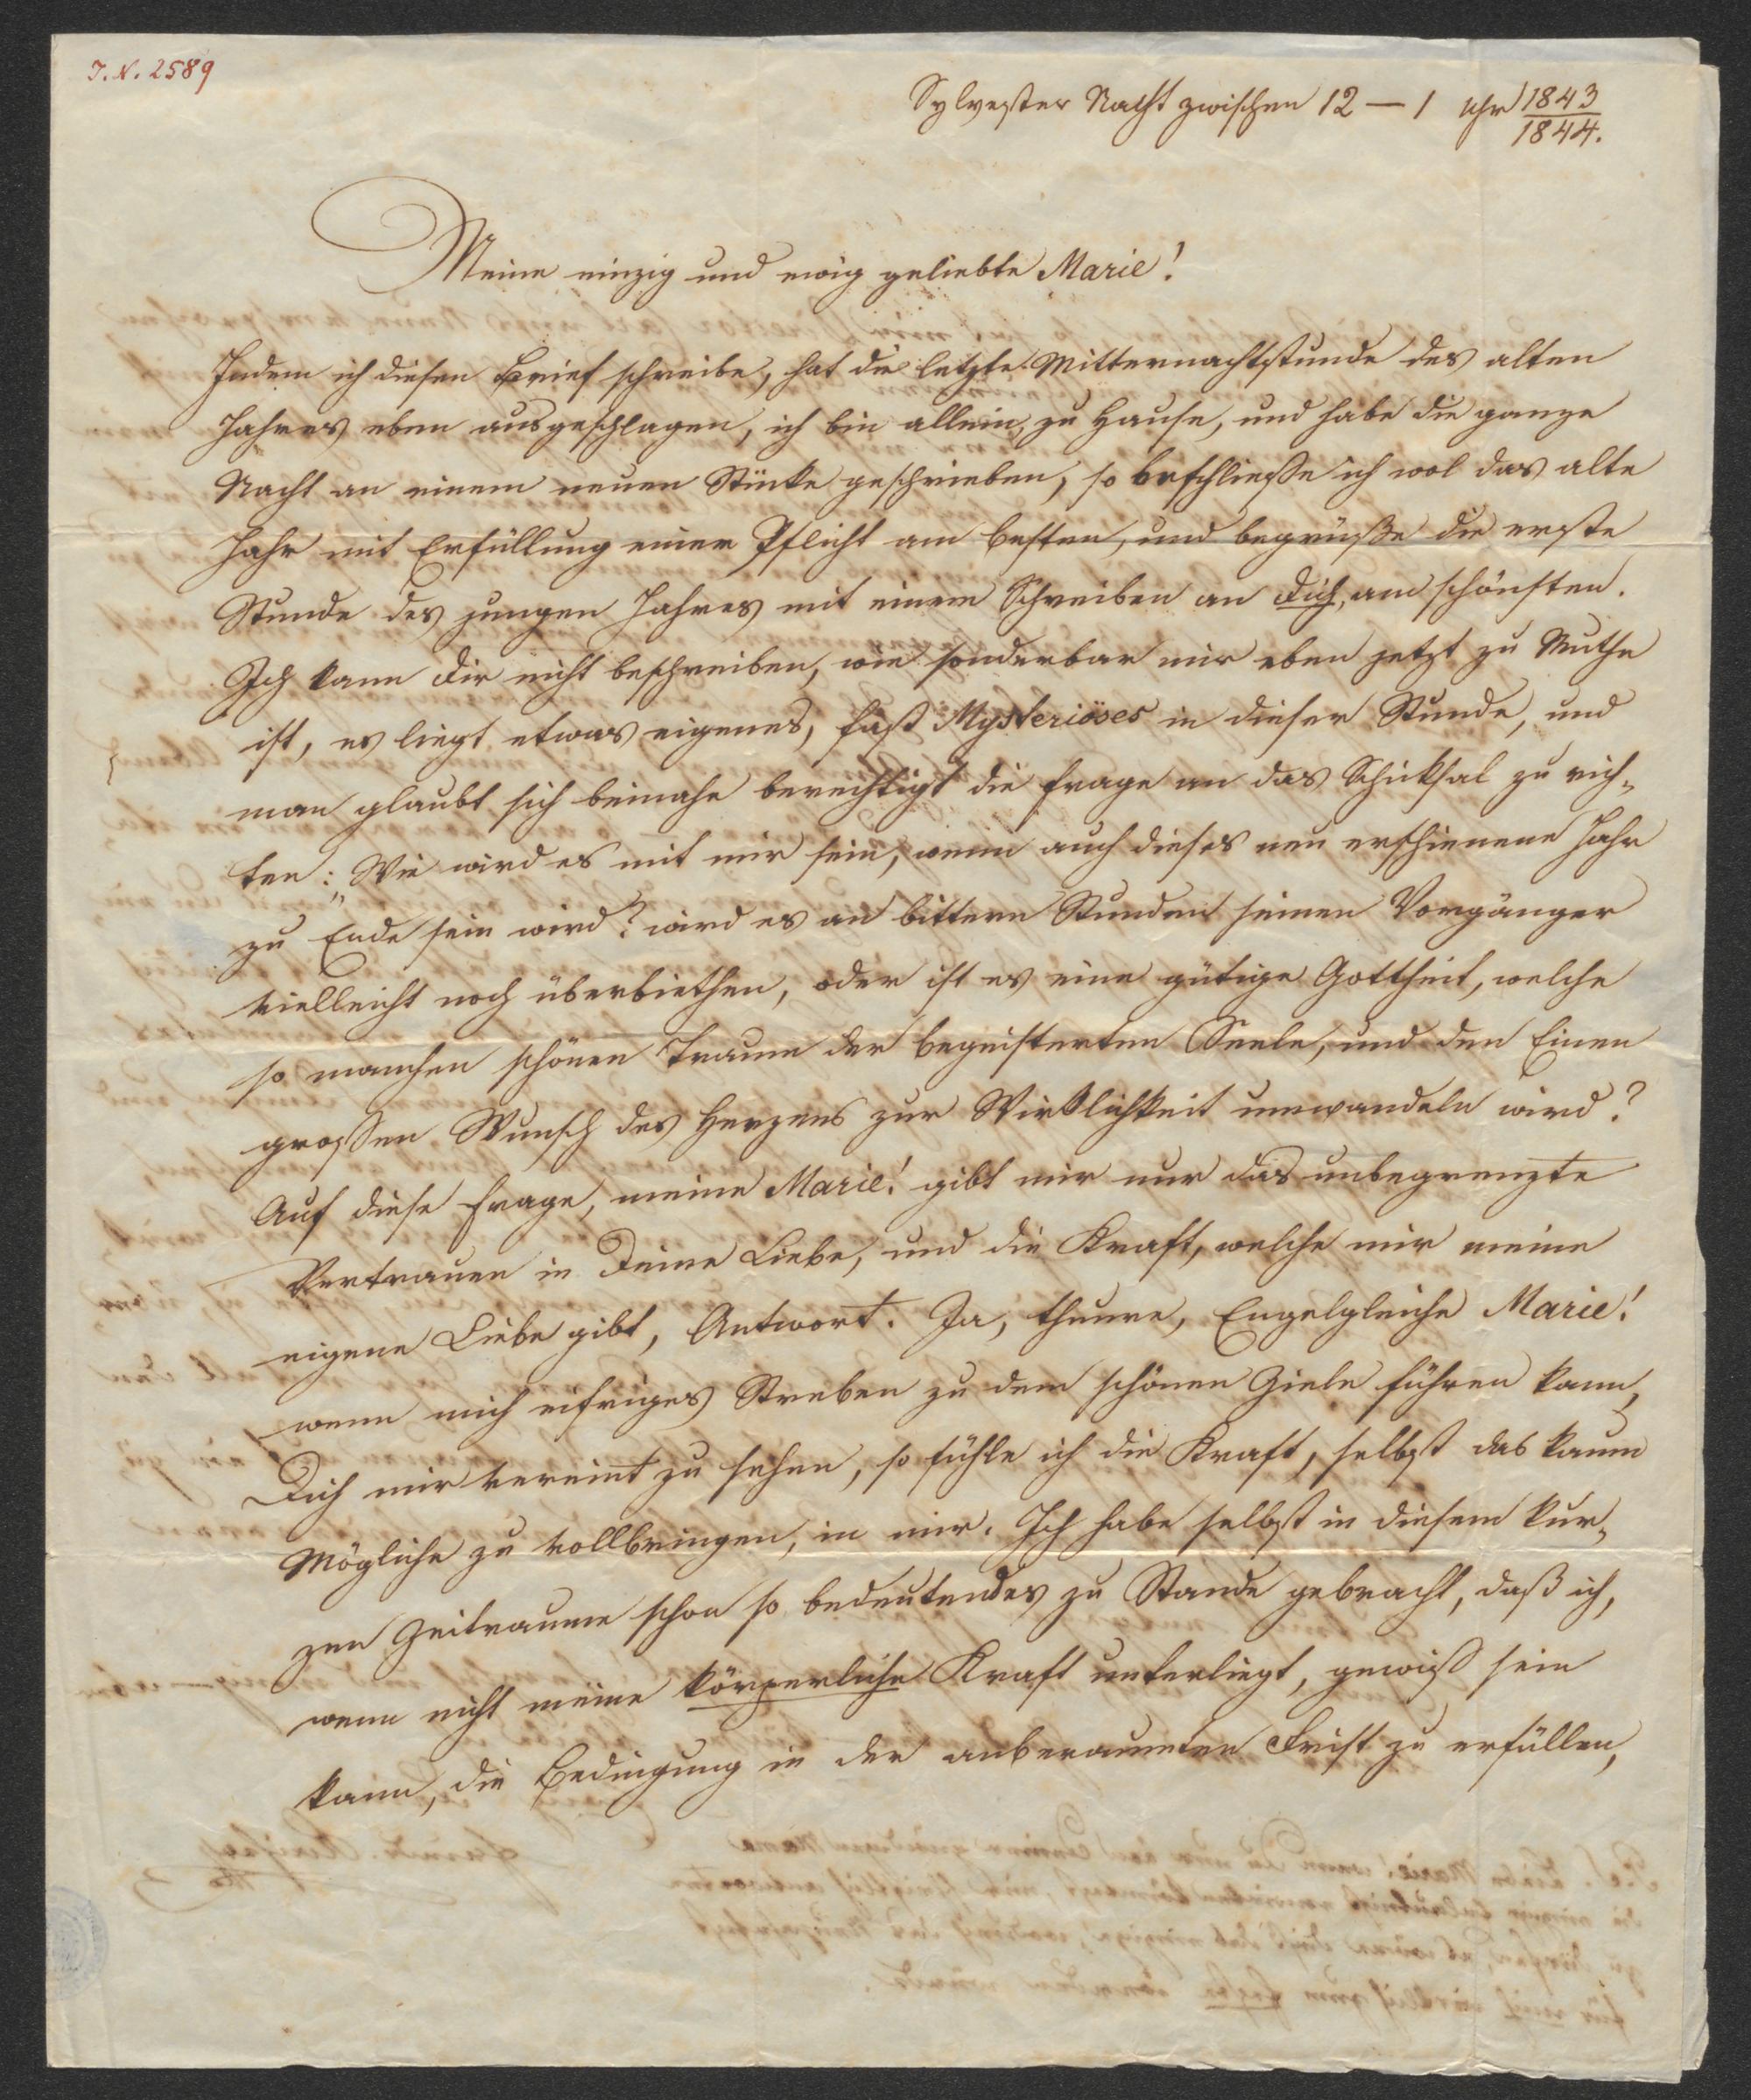 J. N. 2589
Sylvester Nacht zwischen 12 — 1 Uhr 1843
1844.
Meine einzig und ewig geliebte Marie!
Indem ich diesen Brief schreibe, hat die letzte Mitternachtstunde des alten
Jahres eben ausgeschlagen, ich bin allein, zu Hause, und habe die ganze
Nacht an einem neuen Stücke geschrieben, so beschließe ich wol das alte
Jahr mit Erfüllung einer Pflicht am besten, und begrüße die erste
Stunde des jungen Jahres mit einem Schreiben an Dich, am schönsten.
Ich kann Dir nicht beschreiben, wie sonderbar mir eben jetzt zu Muthe
ist, es liegt etwas eigenes, fast Mysteriöses in dieser Stunde, und
man glaubt sich beinahe berechtigt die Frage an das Schicksal zu rich-
ten: „Wie wird es mit mir sein, wenn auch dieses neu erschienene Jahr
zu Ende sein wird? wird es an bittern Stunden seinen Vorgänger
vielleicht noch überbiethen, oder ist es eine gütige Gottheit, welche
so manchen schönen Traum der begeisterten Seele, und den Einen
großen Wunsch des Herzens zur Wirklichkeit umwandeln wird?
Auf diese Frage, meine Marie! gibt mir nur das unbegrenzte
Vertrauen in Deine Liebe, und die Kraft, welche mir meine
eigene Liebe gibt, Antwort. Ja, theure, Engelgleiche Marie!
wenn mich eifriges Streben zu dem schönen Ziele führen kann,
Dich mir vereint zu sehen, so fühle ich die Kraft, selbst das kaum
Mögliche zu vollbringen, in mir. Ich habe selbst in diesem kur-
zen Zeitraume schon so bedeutendes zu Stande gebracht, daß ich,
wenn nicht meine körperliche Kraft unterliegt, gewiß sein
kann, die Bedingung in der anberaumten Frist zu erfüllen,